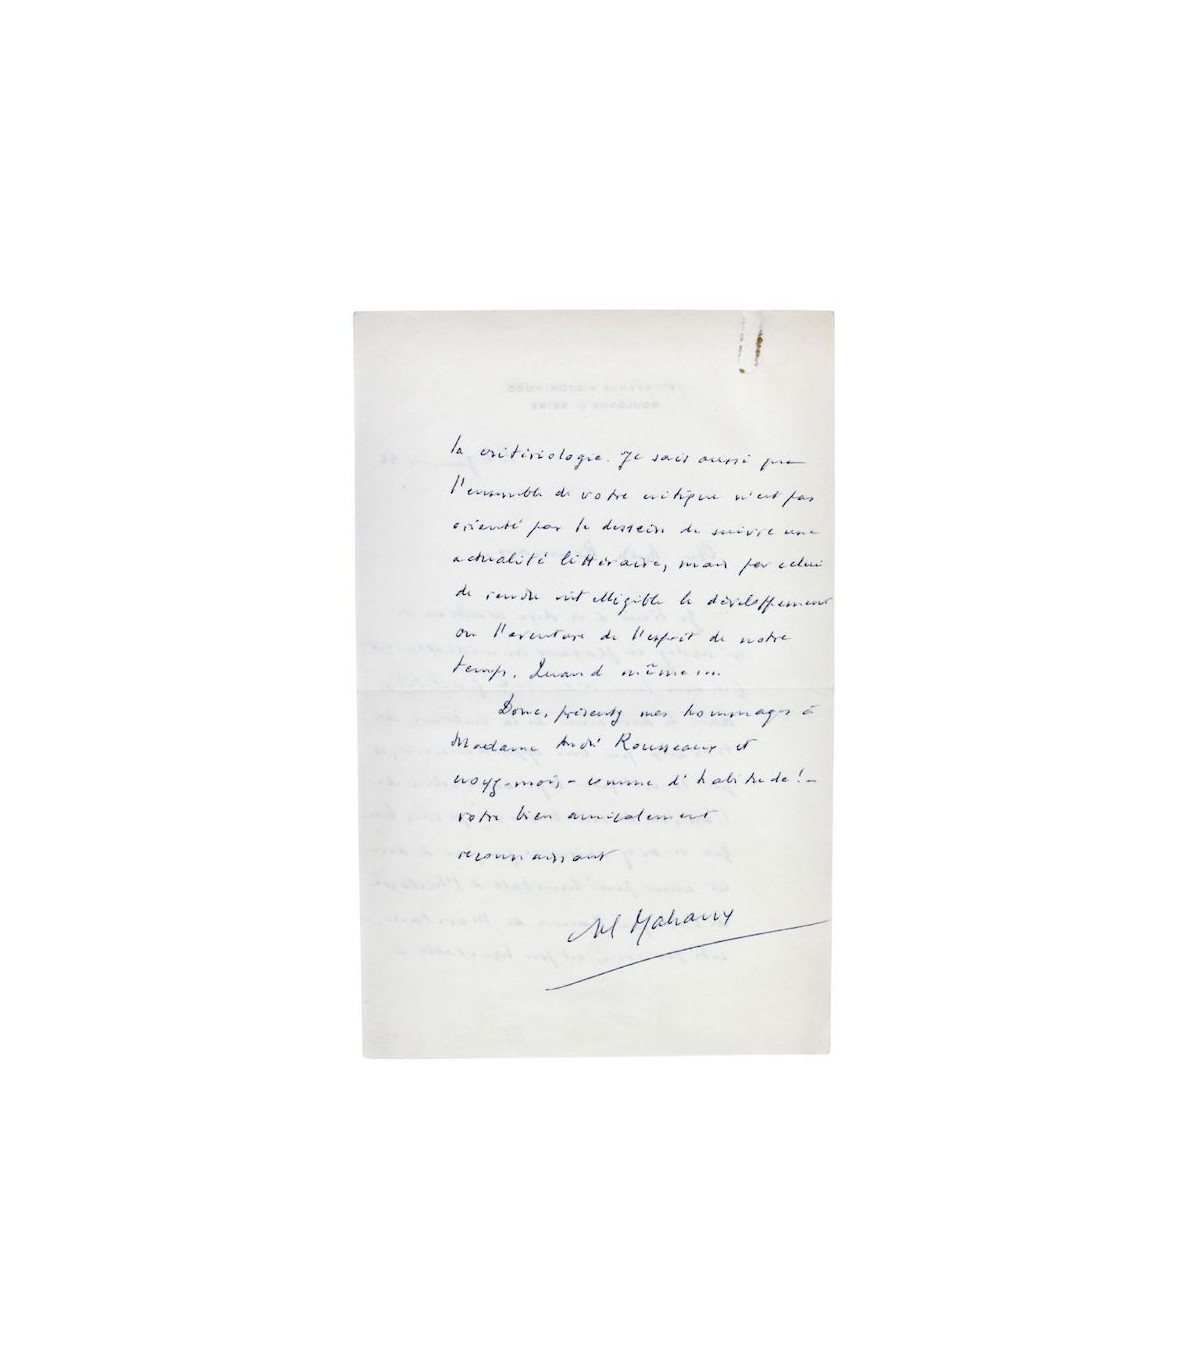 la critériologie. Je sais aussi que
l'ensemble de votre critique n'est pas
orienté par le dessein de suivre une
actualité littéraire, mais par celui
de rendre intelligible le développement
ou l'aventure de l'esprit de notre
temps. Quand même...
Donc, présentez mes hommages à
Madame André Rousseaux et
croyez-moi, - comme d'habitude! -
votre bien amicalement
reconnaissant
Malraux